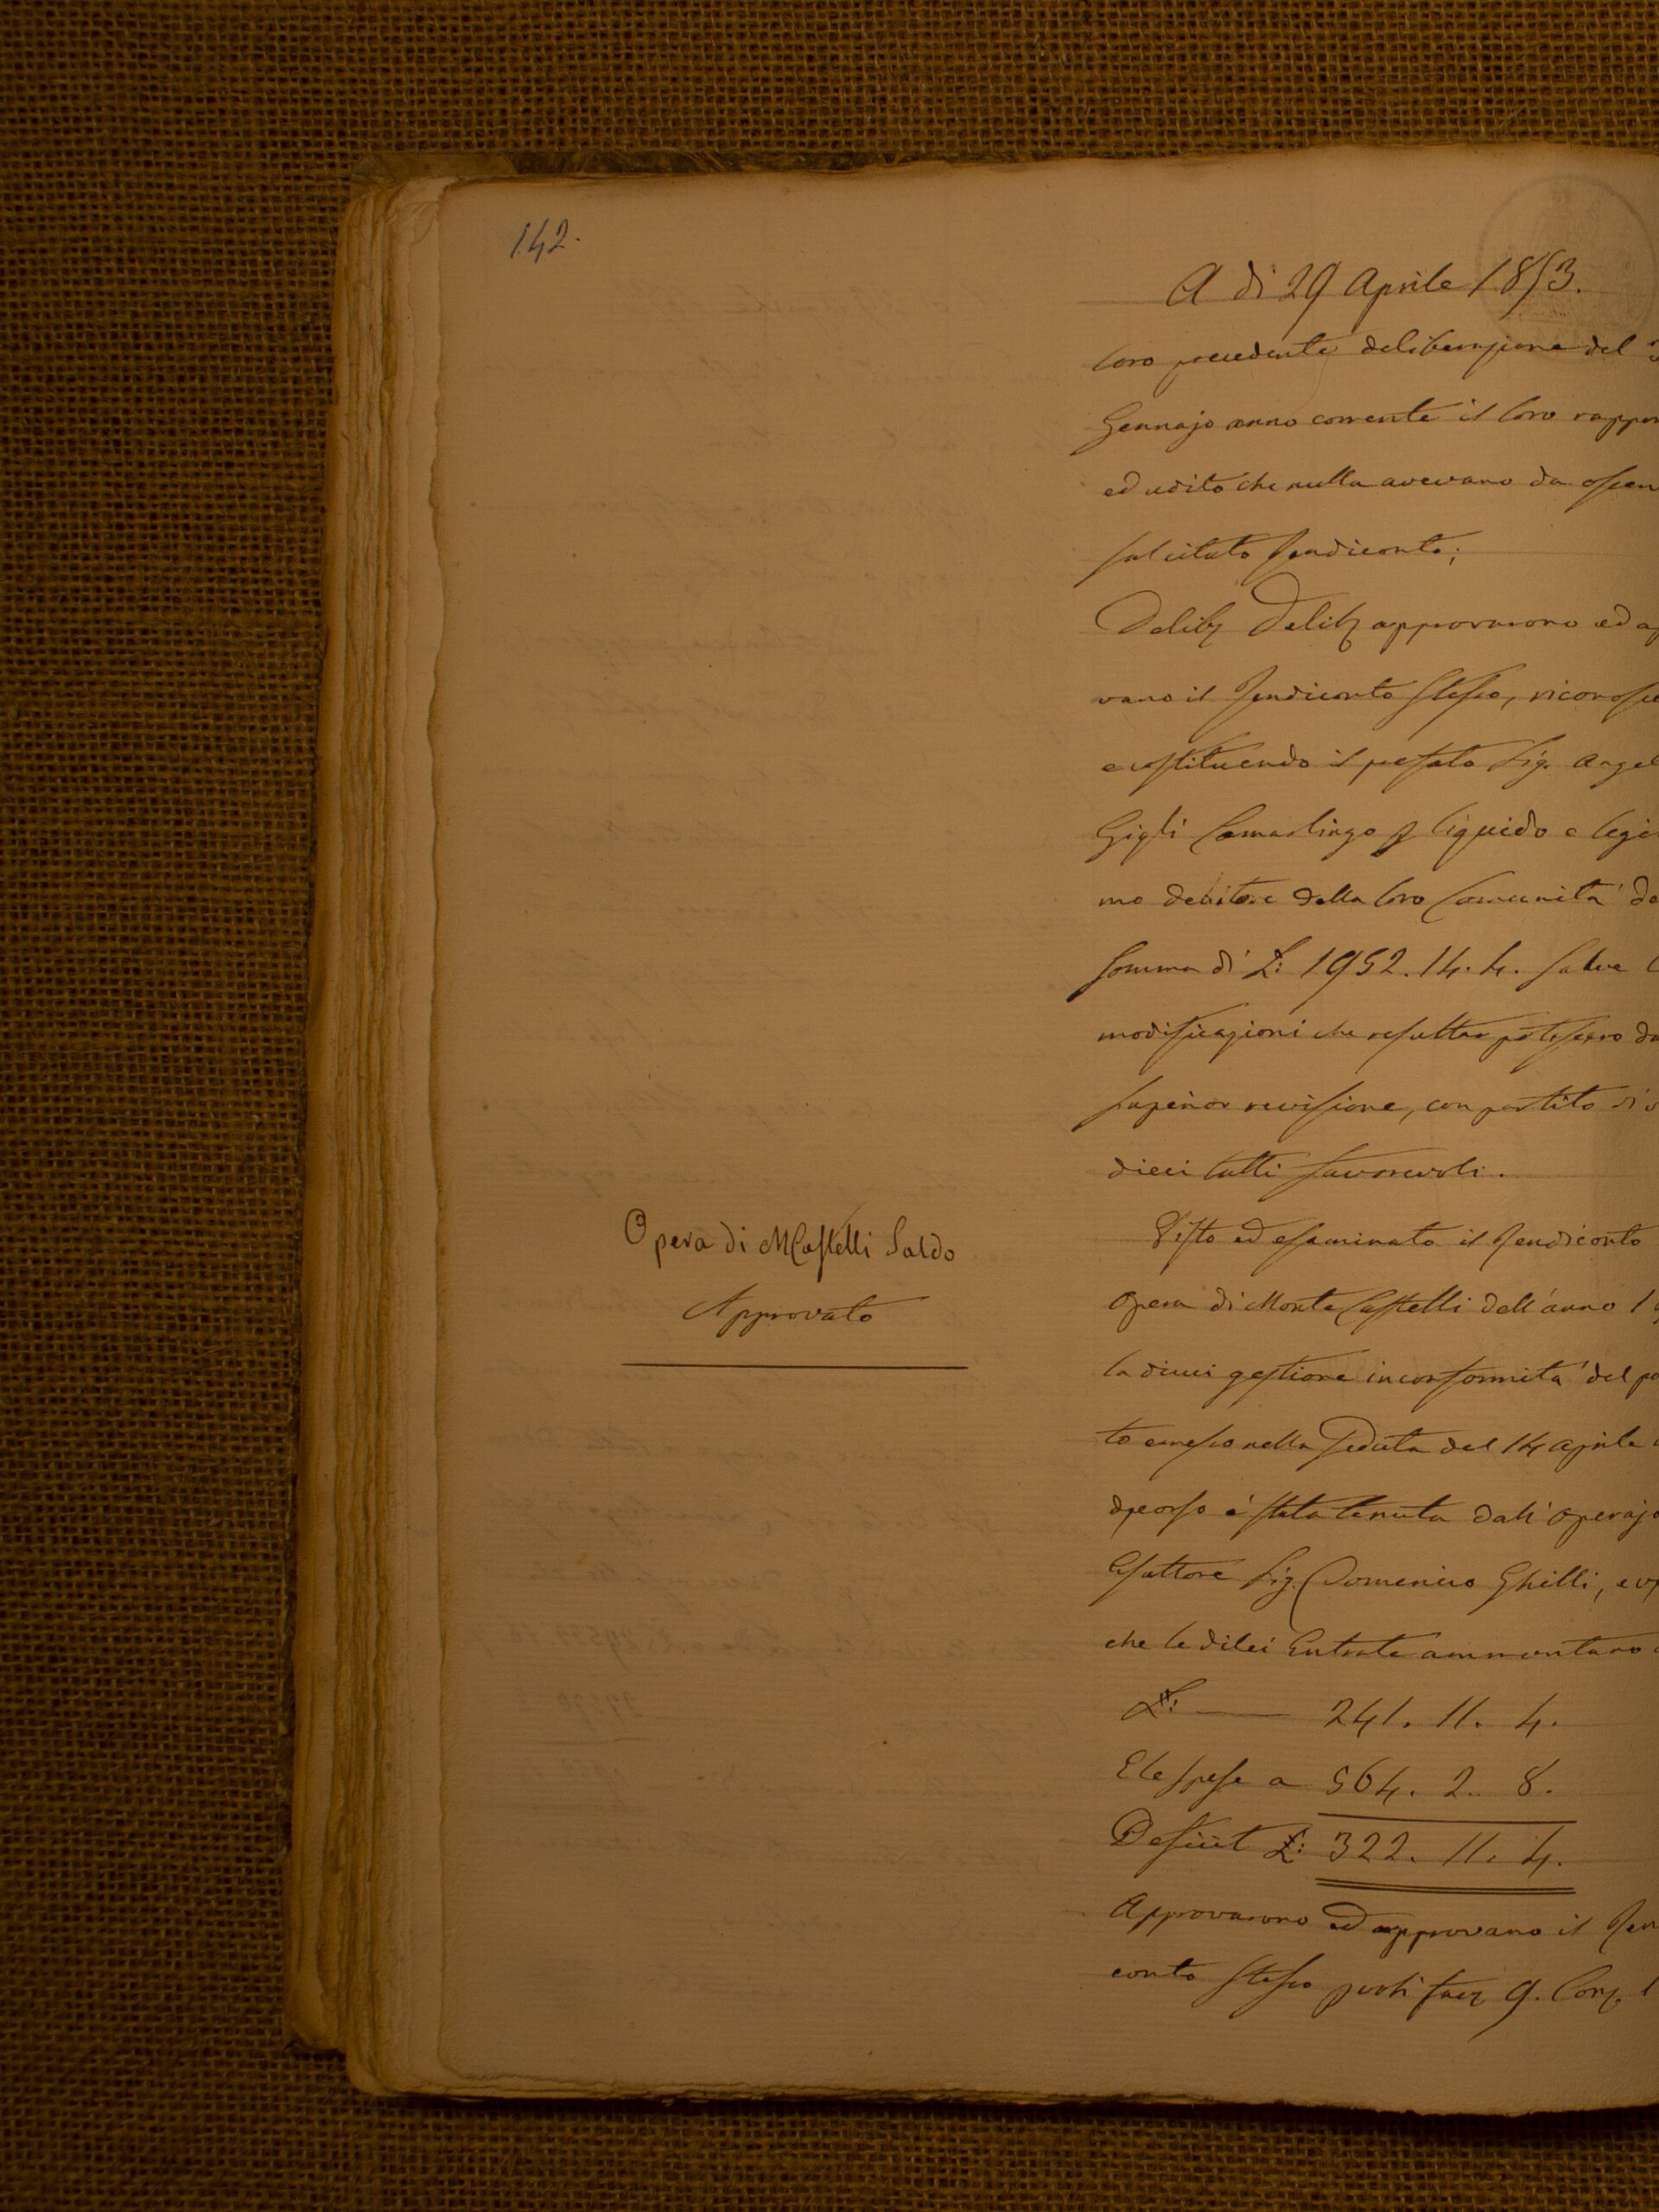 142.
A di 29 Aprile 1853.
loro precedente deliberazione del
Gennajo anno corrente il loro rappor
ed udito che nulla avevano da osser
sul citato Rendiconto;
Delib: Delib: approvarono ed ap
vano il Rendiconto stesso, riconosce
e costituendo il prefato Sig. Angel
Gigli Camarlingo p liquido e legi
mo debitore della loro Comunità de
somma di L: 1952.14.4. salve l
modificazioni che resultar potessero da
superior revisione, con partito di
dieci tutti favorevoli.
Opera di MCastelli Saldo
Approvato
Visto ed esaminato il Rendiconto
Opera di Monte Castelli dell'anno 1
la di cui gestione in conformità del
to emesso nella Seduta del 14 aprile
decorso è stata tenuta dall'Operajo
Esattore Sig. Domenico Ghilli, e
che le di lei Entrate ammontano
L: — 241. 11. 4.
E le spese a 564. 2. 8.
Deficit L: 322. 11. 4.
Approvarono ed approvano il Ren
conto stesso per li suoi 9. Cong.